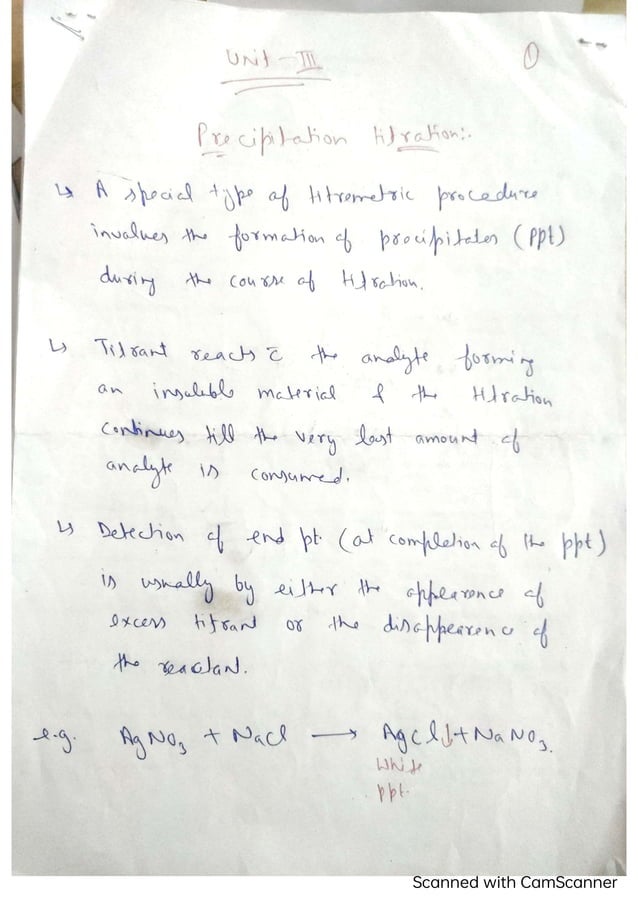 Unit - III
1
Precipitation titration:-
↳ A special type of titrometric procedure
involves the formation of precipitates (ppt)
during the course of titration.
↳ Titrant reacts c̄ the analyte forming
an insoluble material & the titration
continues till the very last amount of
analyte is consumed.
↳ Detection of end pt. (at completion of the ppt)
is usually by either the appearence of
excess titrant or the disappearence of
the reactant.
e.g. AgNO3 + NaCl → AgCl↓ + NaNO3.
White
ppt.
Scanned with CamScanner